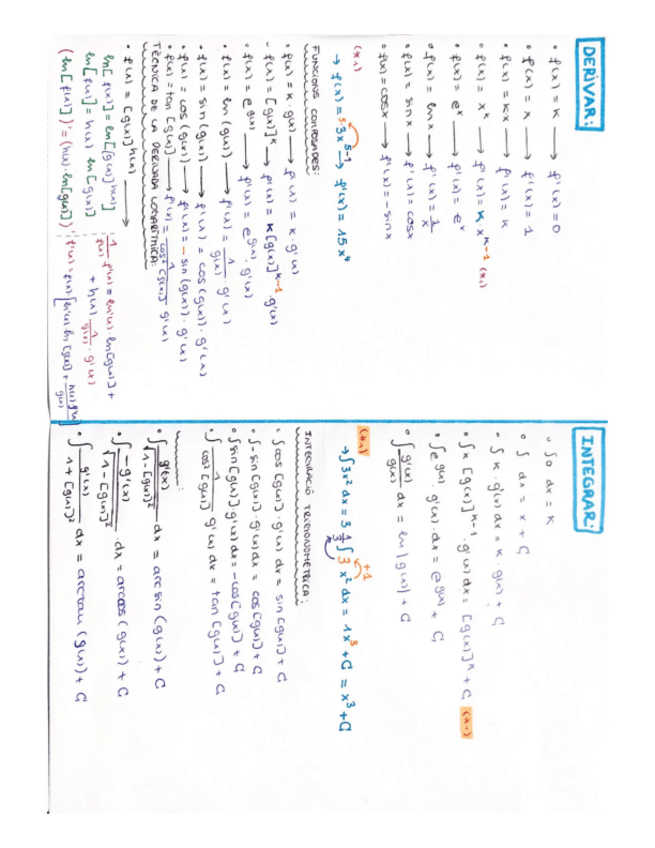 DERIVAR:
• f(x) = k ⟶ f'(x) = 0
• f(x) = x ⟶ f'(x) = 1
• f(x) = kx ⟶ f'(x) = k
• f(x) = x^k ⟶ f'(x) = k·x^(k-1) (*1)
• f(x) = e^x ⟶ f'(x) = e^x
• f(x) = ln x ⟶ f'(x) = 1/x
• f(x) = sin x ⟶ f'(x) = cos x
• f(x) = cos x ⟶ f'(x) = -sin x
(*1)
→ f(x) = 5·3x^(5-1) ⟶ f'(x) = 15x^4
FUNCIONS COMPOSADES:
• f(x) = k·g(x) ⟶ f'(x) = k·g'(x)
• f(x) = [g(x)]^k ⟶ f'(x) = k[g(x)]^(k-1)·g'(x)
• f(x) = e^(g(x)) ⟶ f'(x) = e^(g(x))·g'(x)
• f(x) = ln (g(x)) ⟶ f'(x) = 1/g(x) g'(x)
• f(x) = sin (g(x)) ⟶ f'(x) = cos (g(x))·g'(x)
• f(x) = cos (g(x)) ⟶ f'(x) = -sin (g(x))·g'(x)
• f(x) = tan [g(x)] ⟶ f'(x) = 1/cos²[g(x)] g'(x)
TÈCNICA DE LA DERIVADA LOGARÍTMICA:
• f(x) = [g(x)]^h(x) ⟶
ln[f(x)] = ln[[g(x)]^h(x)]
ln[f(x)] = h(x) ln[g(x)]
(ln[f(x)])' = (h(x)·ln[g(x)])'
1/f(x) f'(x) = h'(x)·ln[g(x)] +
+ h(x) 1/g(x)·g'(x)
f'(x) = f(x) [h'(x) ln[g(x)] + h(x) g'(x)/g(x)]
INTEGRAR:
• ∫0 dx = k
• ∫ dx = x + C
• ∫k·g'(x) dx = k·g(x) + C
• ∫k [g(x)]^(k-1)·g'(x) dx = [g(x)]^k + C (*1)
• ∫e^(g(x))·g'(x)·dx = e^(g(x)) + C
• ∫g'(x)/g(x) dx = ln|g(x)| + C
(*1)
→ ∫3x² dx = 3 1/3 ∫3 x² dx = 1x³ + C = x³ + C
+1
INTEGRACIÓ TRIGONOMÈTRICA:
• ∫cos[g(x)]·g'(x) dx = sin[g(x)] + C
• ∫-sin[g(x)]·g'(x) dx = cos[g(x)] + C
• ∫sin[g(x)]·g'(x) dx = -cos[g(x)] + C
• ∫1/cos²[g(x)] g'(x) dx = tan[g(x)] + C
• ∫g'(x)/√(1-[g(x)]²) dx = arc sin (g(x)) + C
• ∫-g'(x)/√(1-[g(x)]²) ·dx = arccos (g(x)) + C
• ∫g'(x)/(1+[g(x)]²) dx = arctan (g(x)) + C